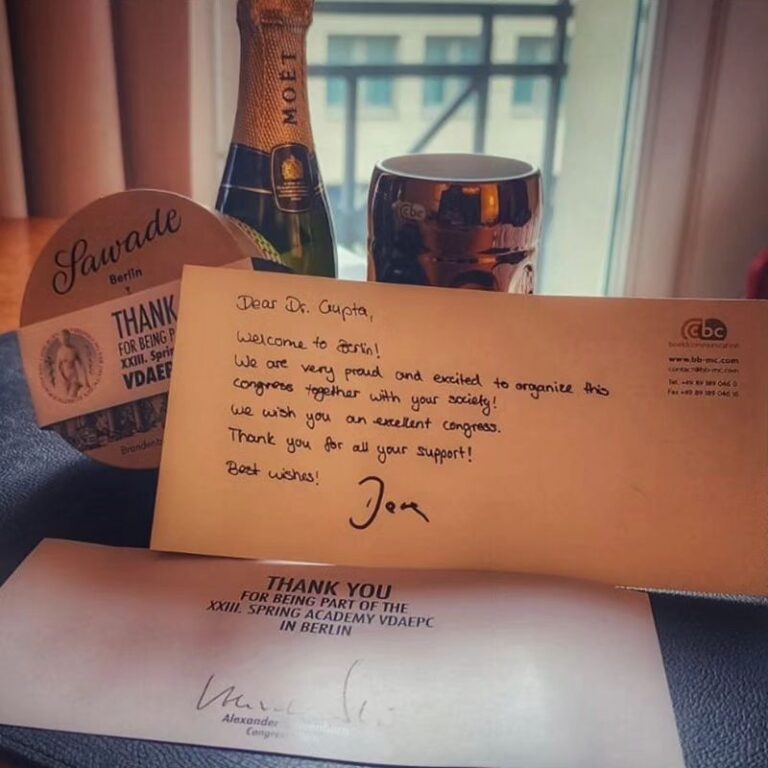 MOËT
Sawade
Berlin
THANK
FOR BEING P
XXIII. Sprin
VDAEP
Brandenb
cbc
Dear Dr. Gupta,
Welcome to Berlin!
We are very proud and excited to organize this
congress together with your society!
We wish you an excellent congress.
Thank you for all your support!
Best wishes!
cbc
www.bb-mc.com
contact@bb-mc.com
Tel. +49 89 189 046 0
Fax +49 89 189 046 16
THANK YOU
FOR BEING PART OF THE
XXIII. SPRING ACADEMY VDAEPC
IN BERLIN
Alexander
Congre